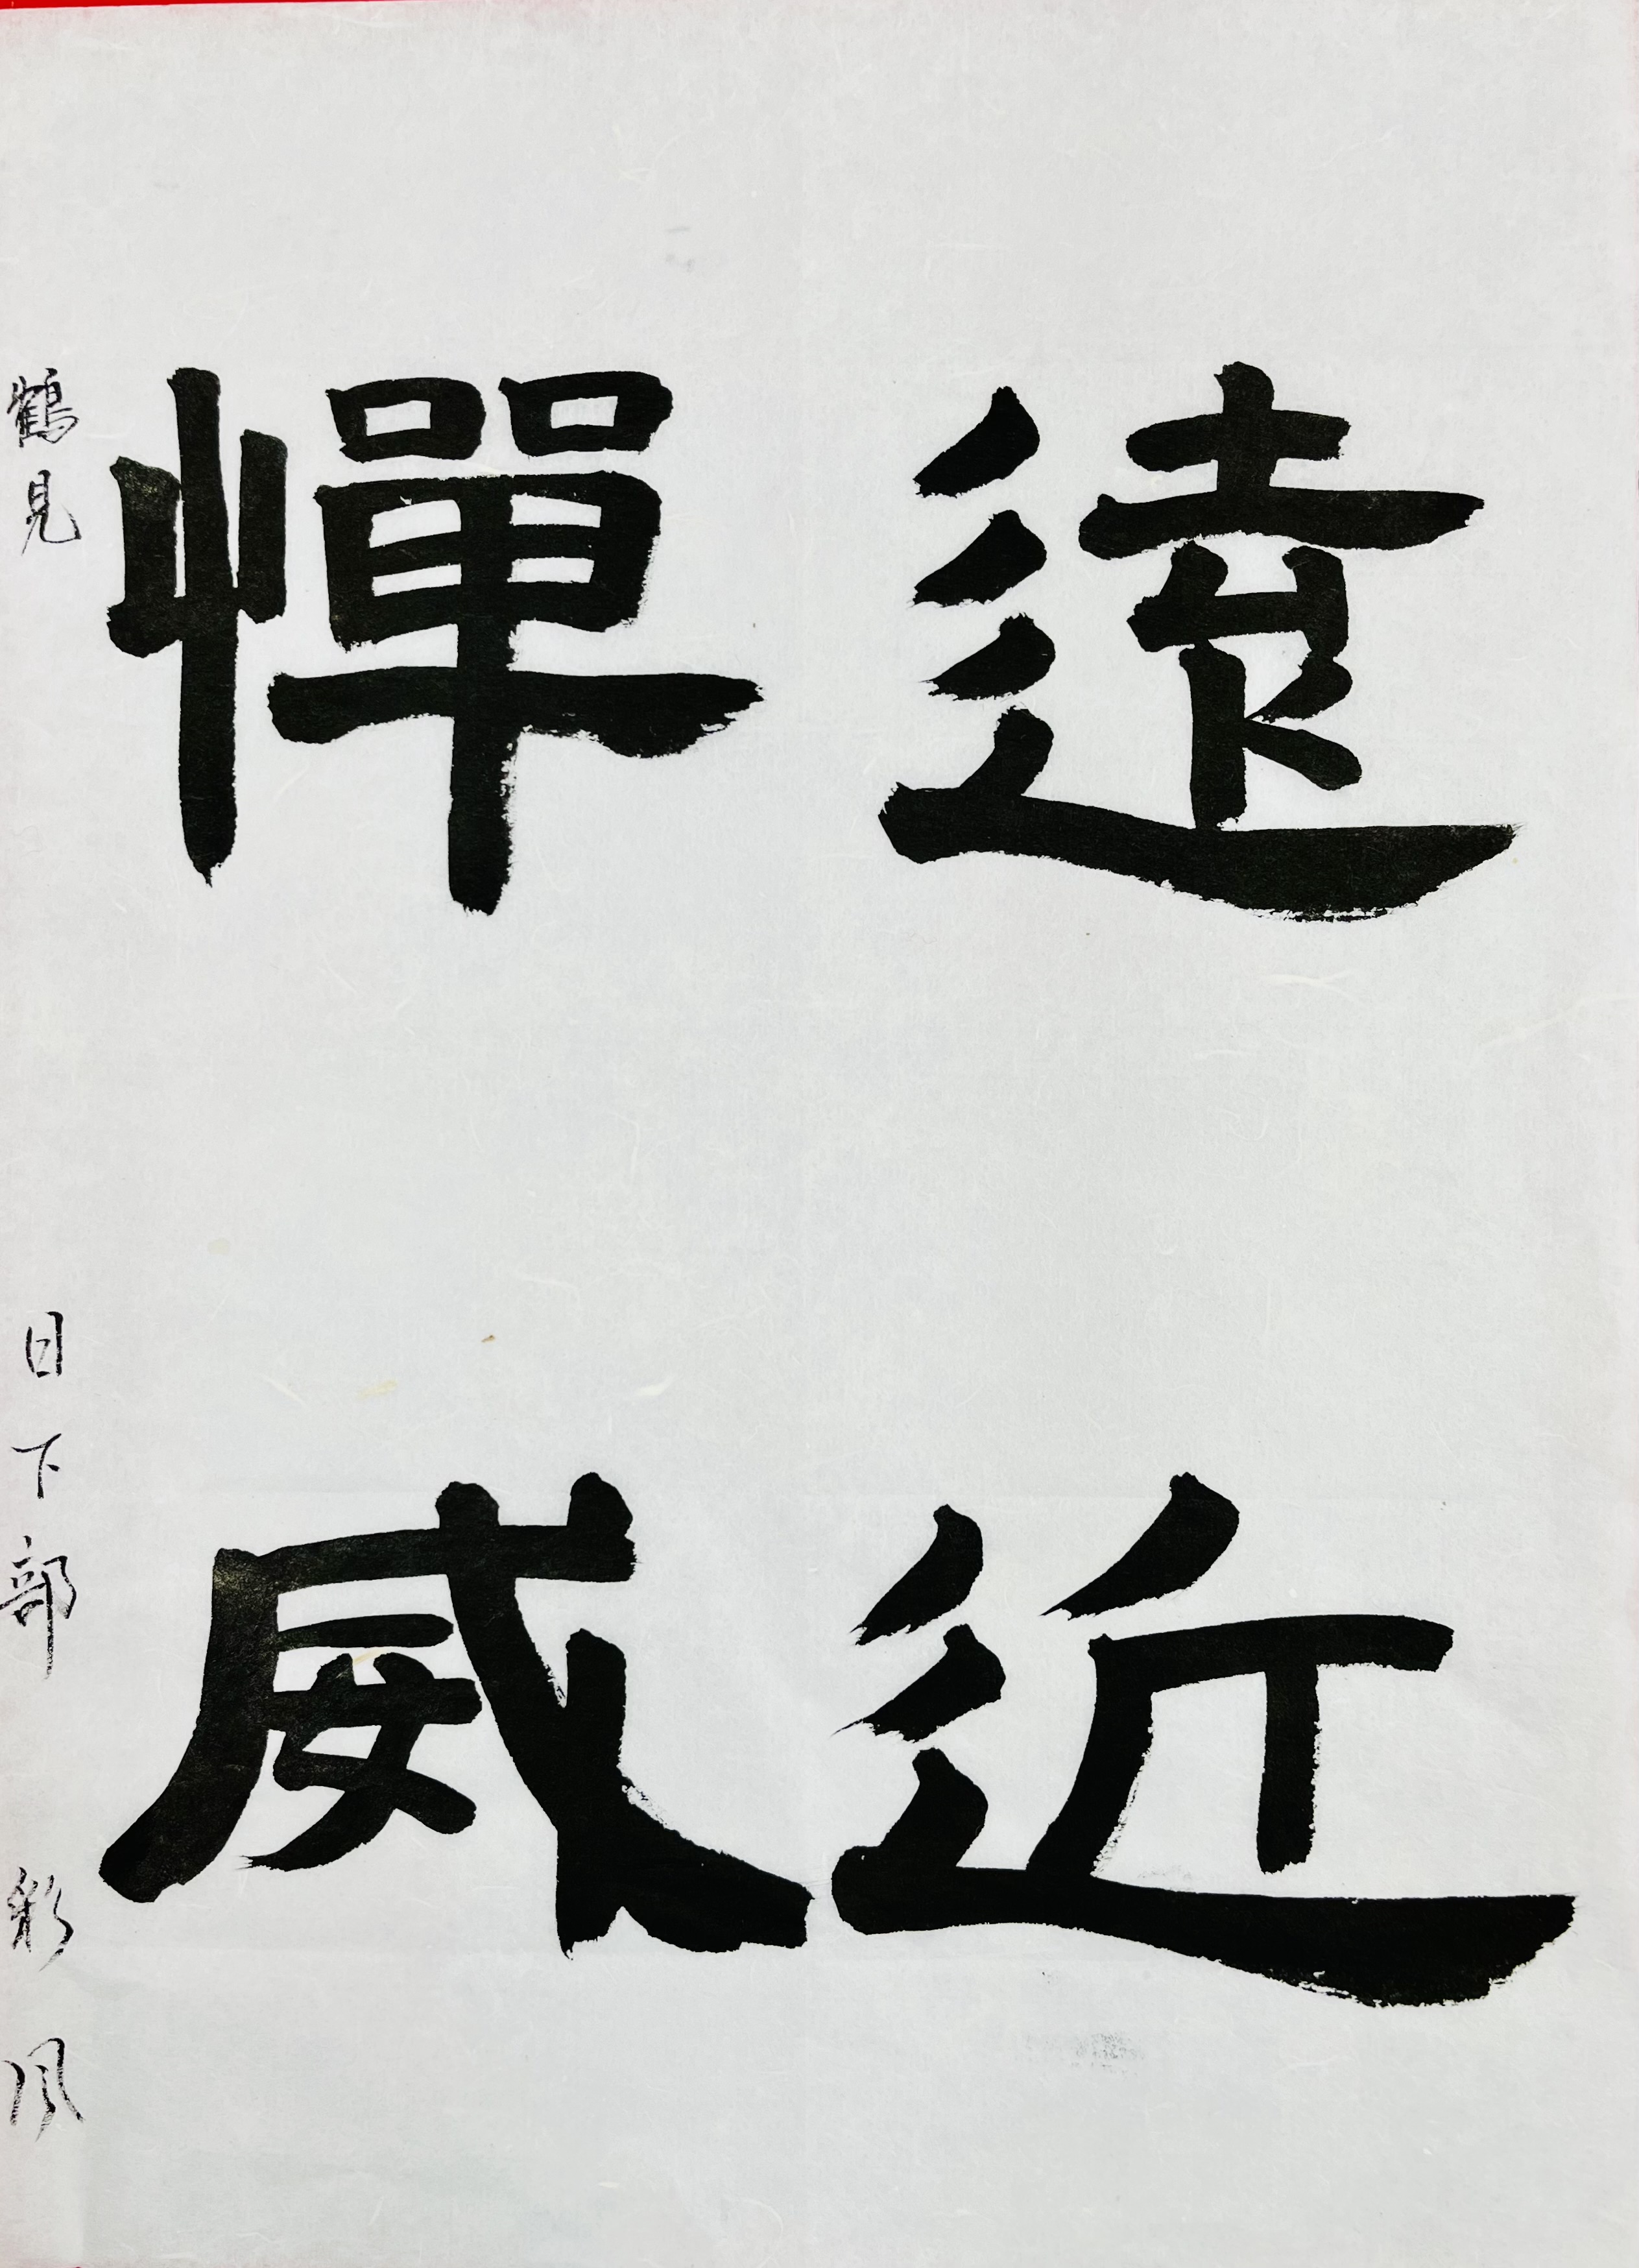 遠近
憚威
鶴見 日下部 彩風